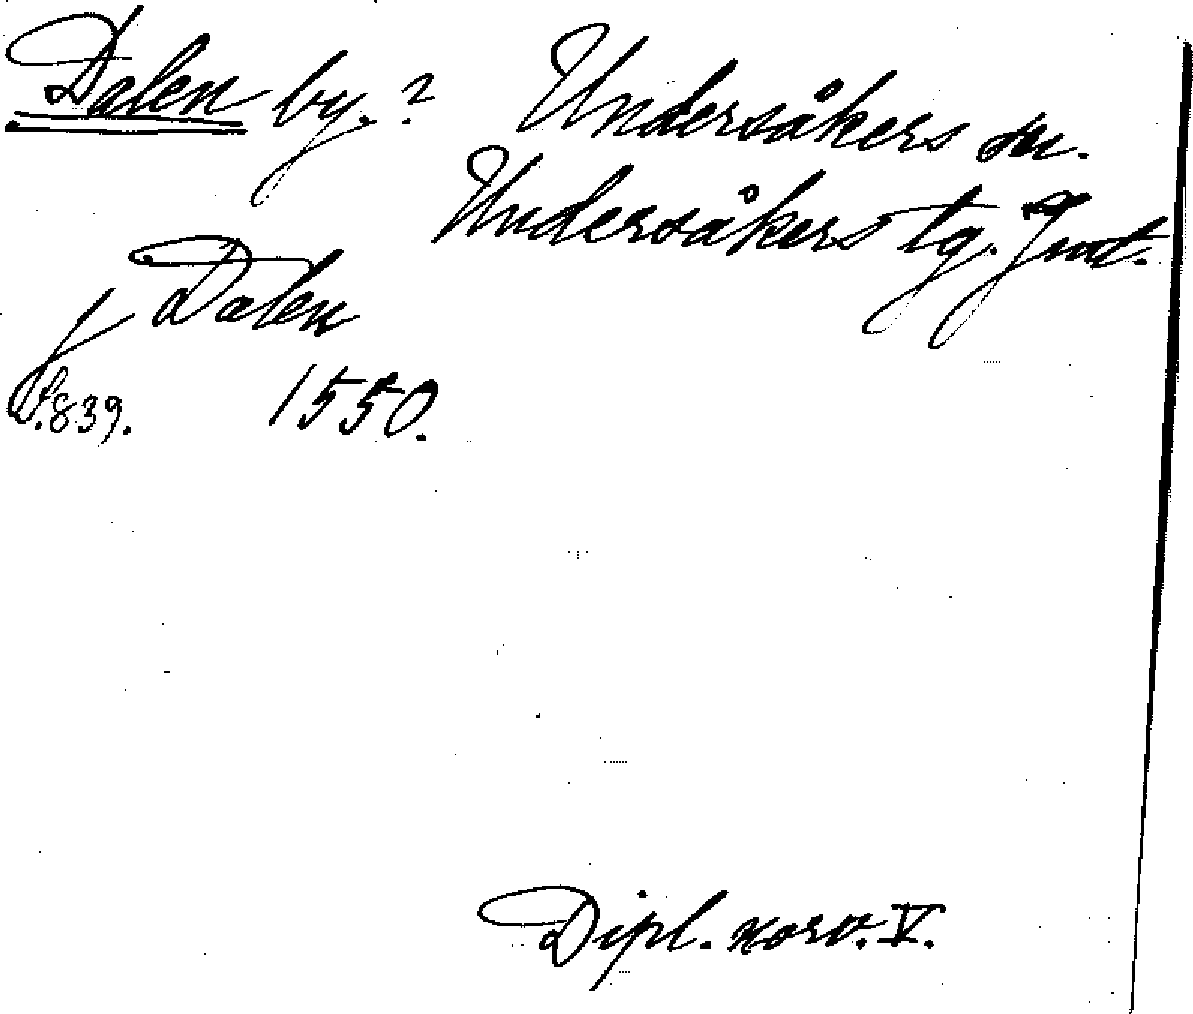 Dalen by.? Undersåkers sn.
Undersåkers tg. Jmt.
j Dalen
S. 839. 1550.
Dipl. norv. V.